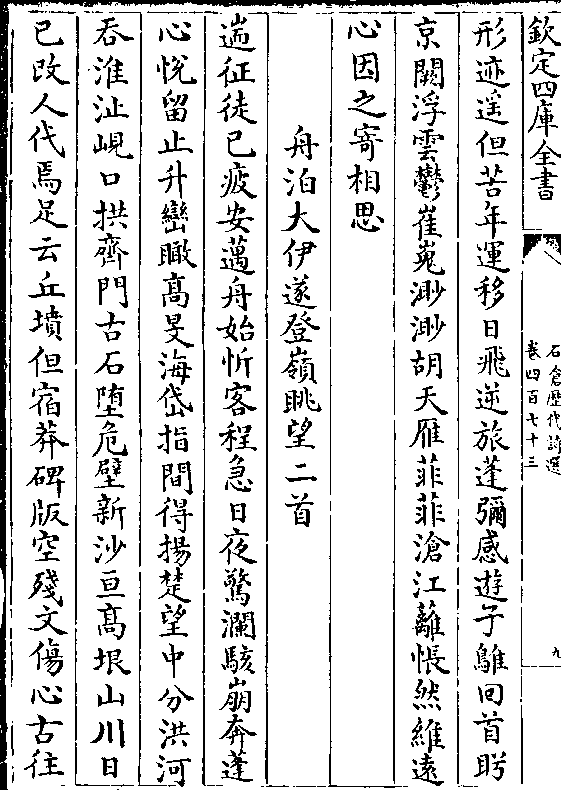 欽定四庫全書
石倉歷代詩選
卷四百七十三
九
形迹遥但苦年運移日飛逆旅蓬彌感遊子雛回首盻
京闕浮雲鬱崔嵬渺渺胡天雁菲菲滄江蘺悵然維遠
心因之寄相思
舟泊大伊遂登嶺眺望二首
遄征徒已疲安邁舟始忻客程急日夜驚瀾駭崩奔蓬
心恱留止升巒瞰髙旻海岱指間得揚楚望中分洪河
吞淮沚峴口拱齊門古石墮危壁新沙亘髙垠山川日
已改人代焉足云丘墳但宿莽碑版空殘文傷心古往